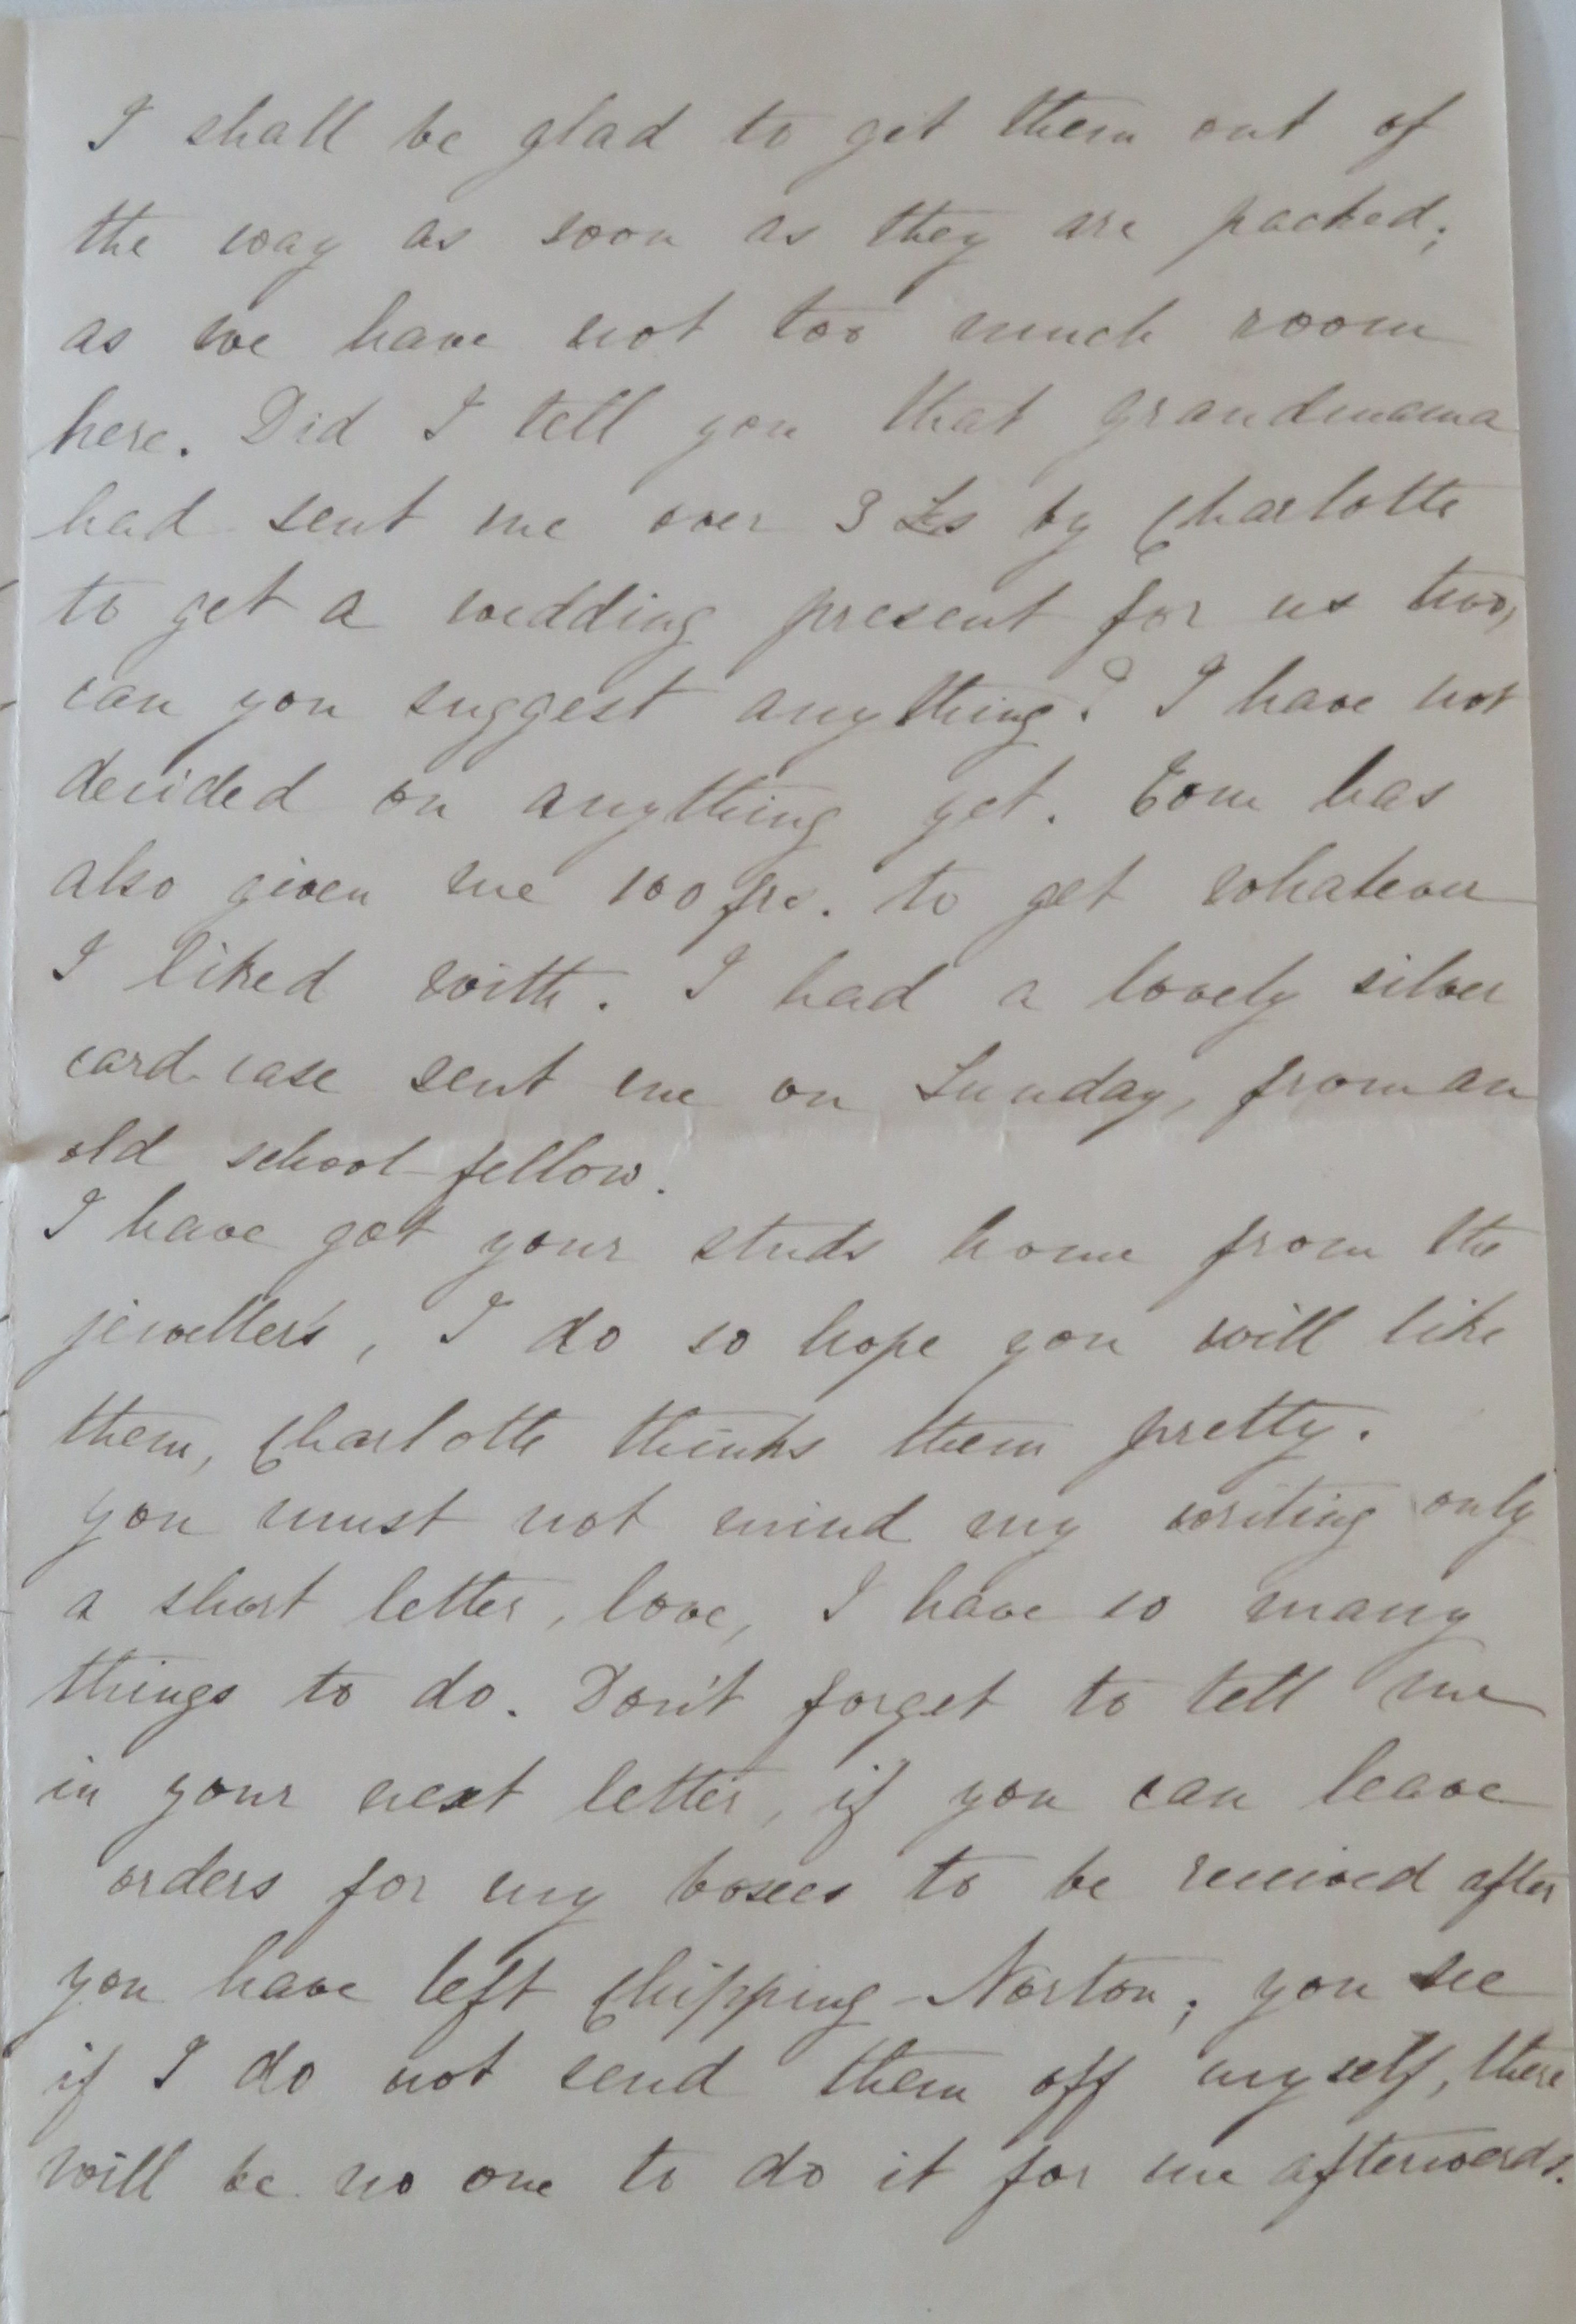 I shall be glad to get them out of
the way as soon as they are packed,
as we have not too much room
here. Did I tell you that grandmama
had sent me over 3 £s by Charlotte
to get a wedding present for us two,
can you suggest anything? I have not
decided on anything yet. Tom has
also given me 100 frs. to get whatever
I liked with. I had a lovely silver
card-case sent me on Sunday, from an
old school-fellow.
I have got your studs home from the
jeweller's, I do so hope you will like
them, Charlotte thinks them pretty.
you must not mind my writing only
a short letter, love, I have so many
things to do. Don't forget to tell me
in your next letter, if you can leave
orders for my boxes to be received after
you have left Chipping-Norton; you see
if I do not send them off myself, there
will be no one to do it for me afterwards.